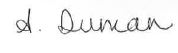 A. Duman